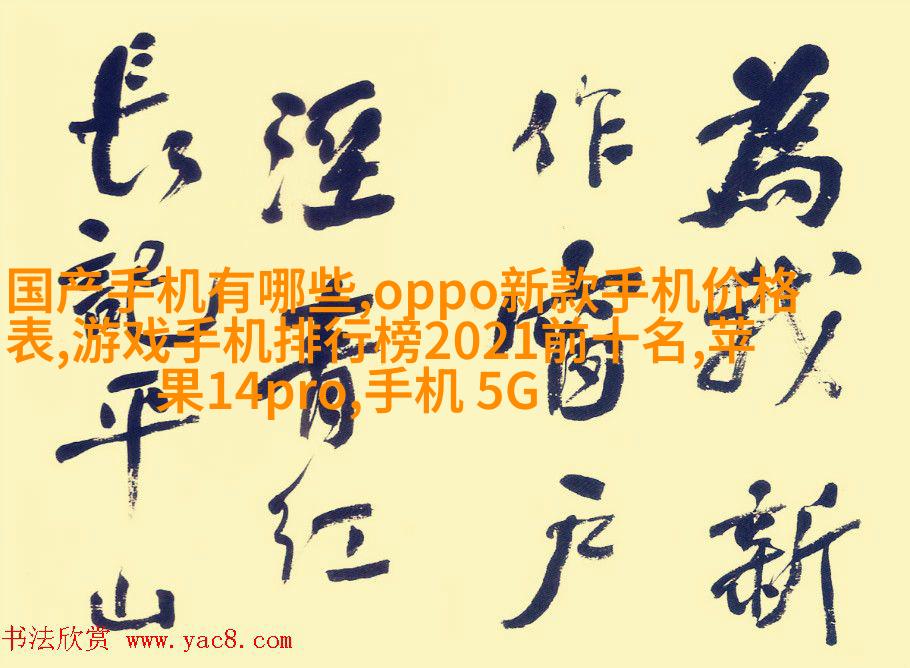 為我新
作窗户
溼青红
長記平山
国产手机有哪些,oppo新款手机价格
表,游戏手机排行榜2021前十名,苹
果14pro,手机 5G
书法欣赏 www.yac8.com